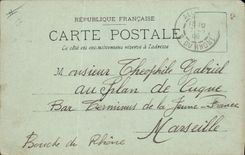 RÉPUBLIQUE FRANÇAISE
CARTE POSTALE
Ce côté est exclusivement réservé à l'adresse
Monsieur Théophile Gabriel
au Plan de Cuque
Bar Terminus de la Jeune-France
Marseille
Bouche du Rhône